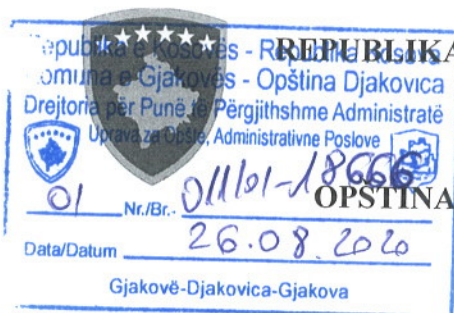 Republika e Kosovës - Republika Kosova
REPUBLIKA
Komuna e Gjakovës - Opština Djakovica
Drejtoria për Punë të Përgjithshme Administratë
Uprava za Opšte, Administrativne Poslove
01 Nr./Br. 011/01-18666
OPŠTINA
Data/Datum 26.08.2020
Gjakovë-Djakovica-Gjakova